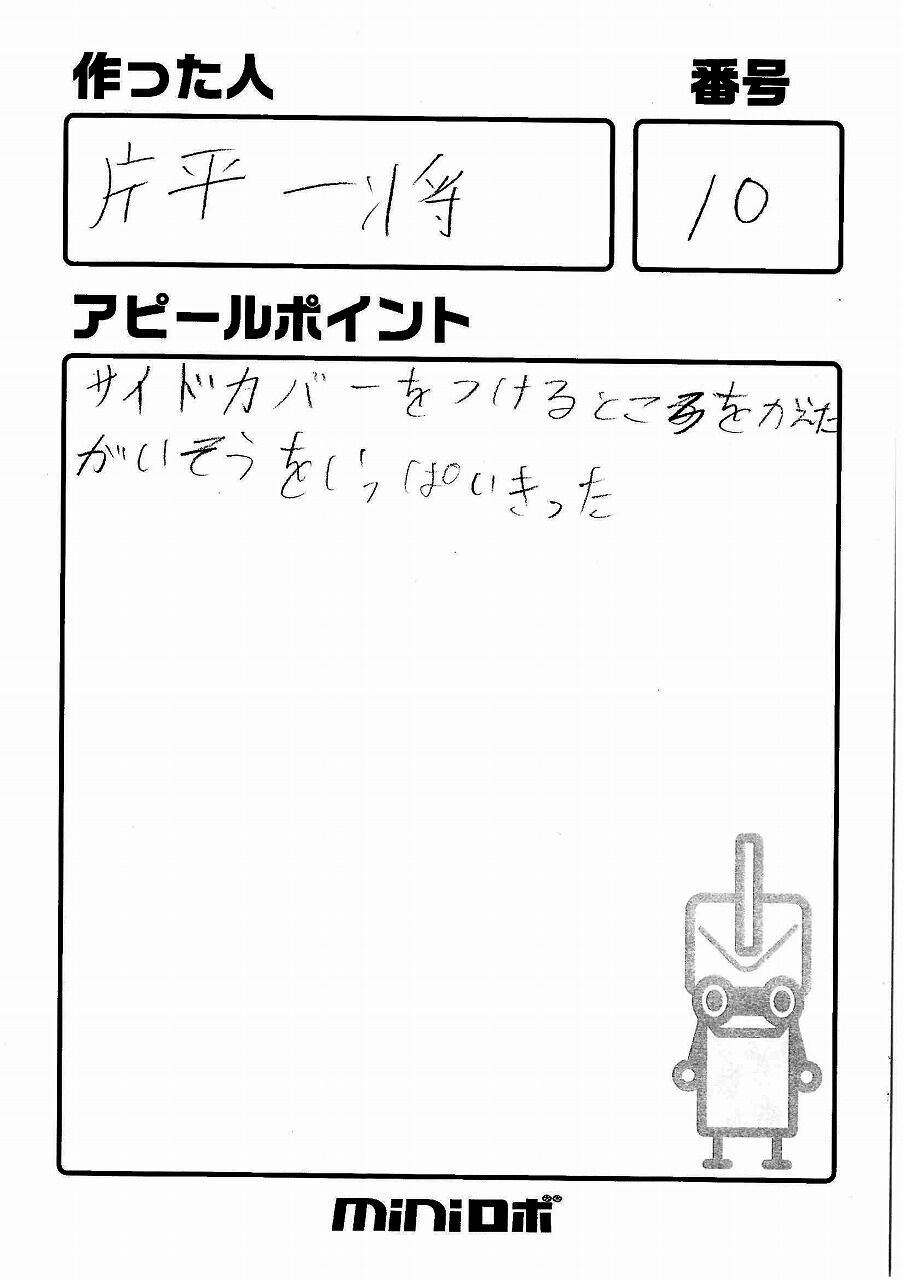 作った人
番号
片平 一将
10
アピールポイント
サイドカバーをつけるところをかえた
がいそうをいっぱいきった
miniロボ